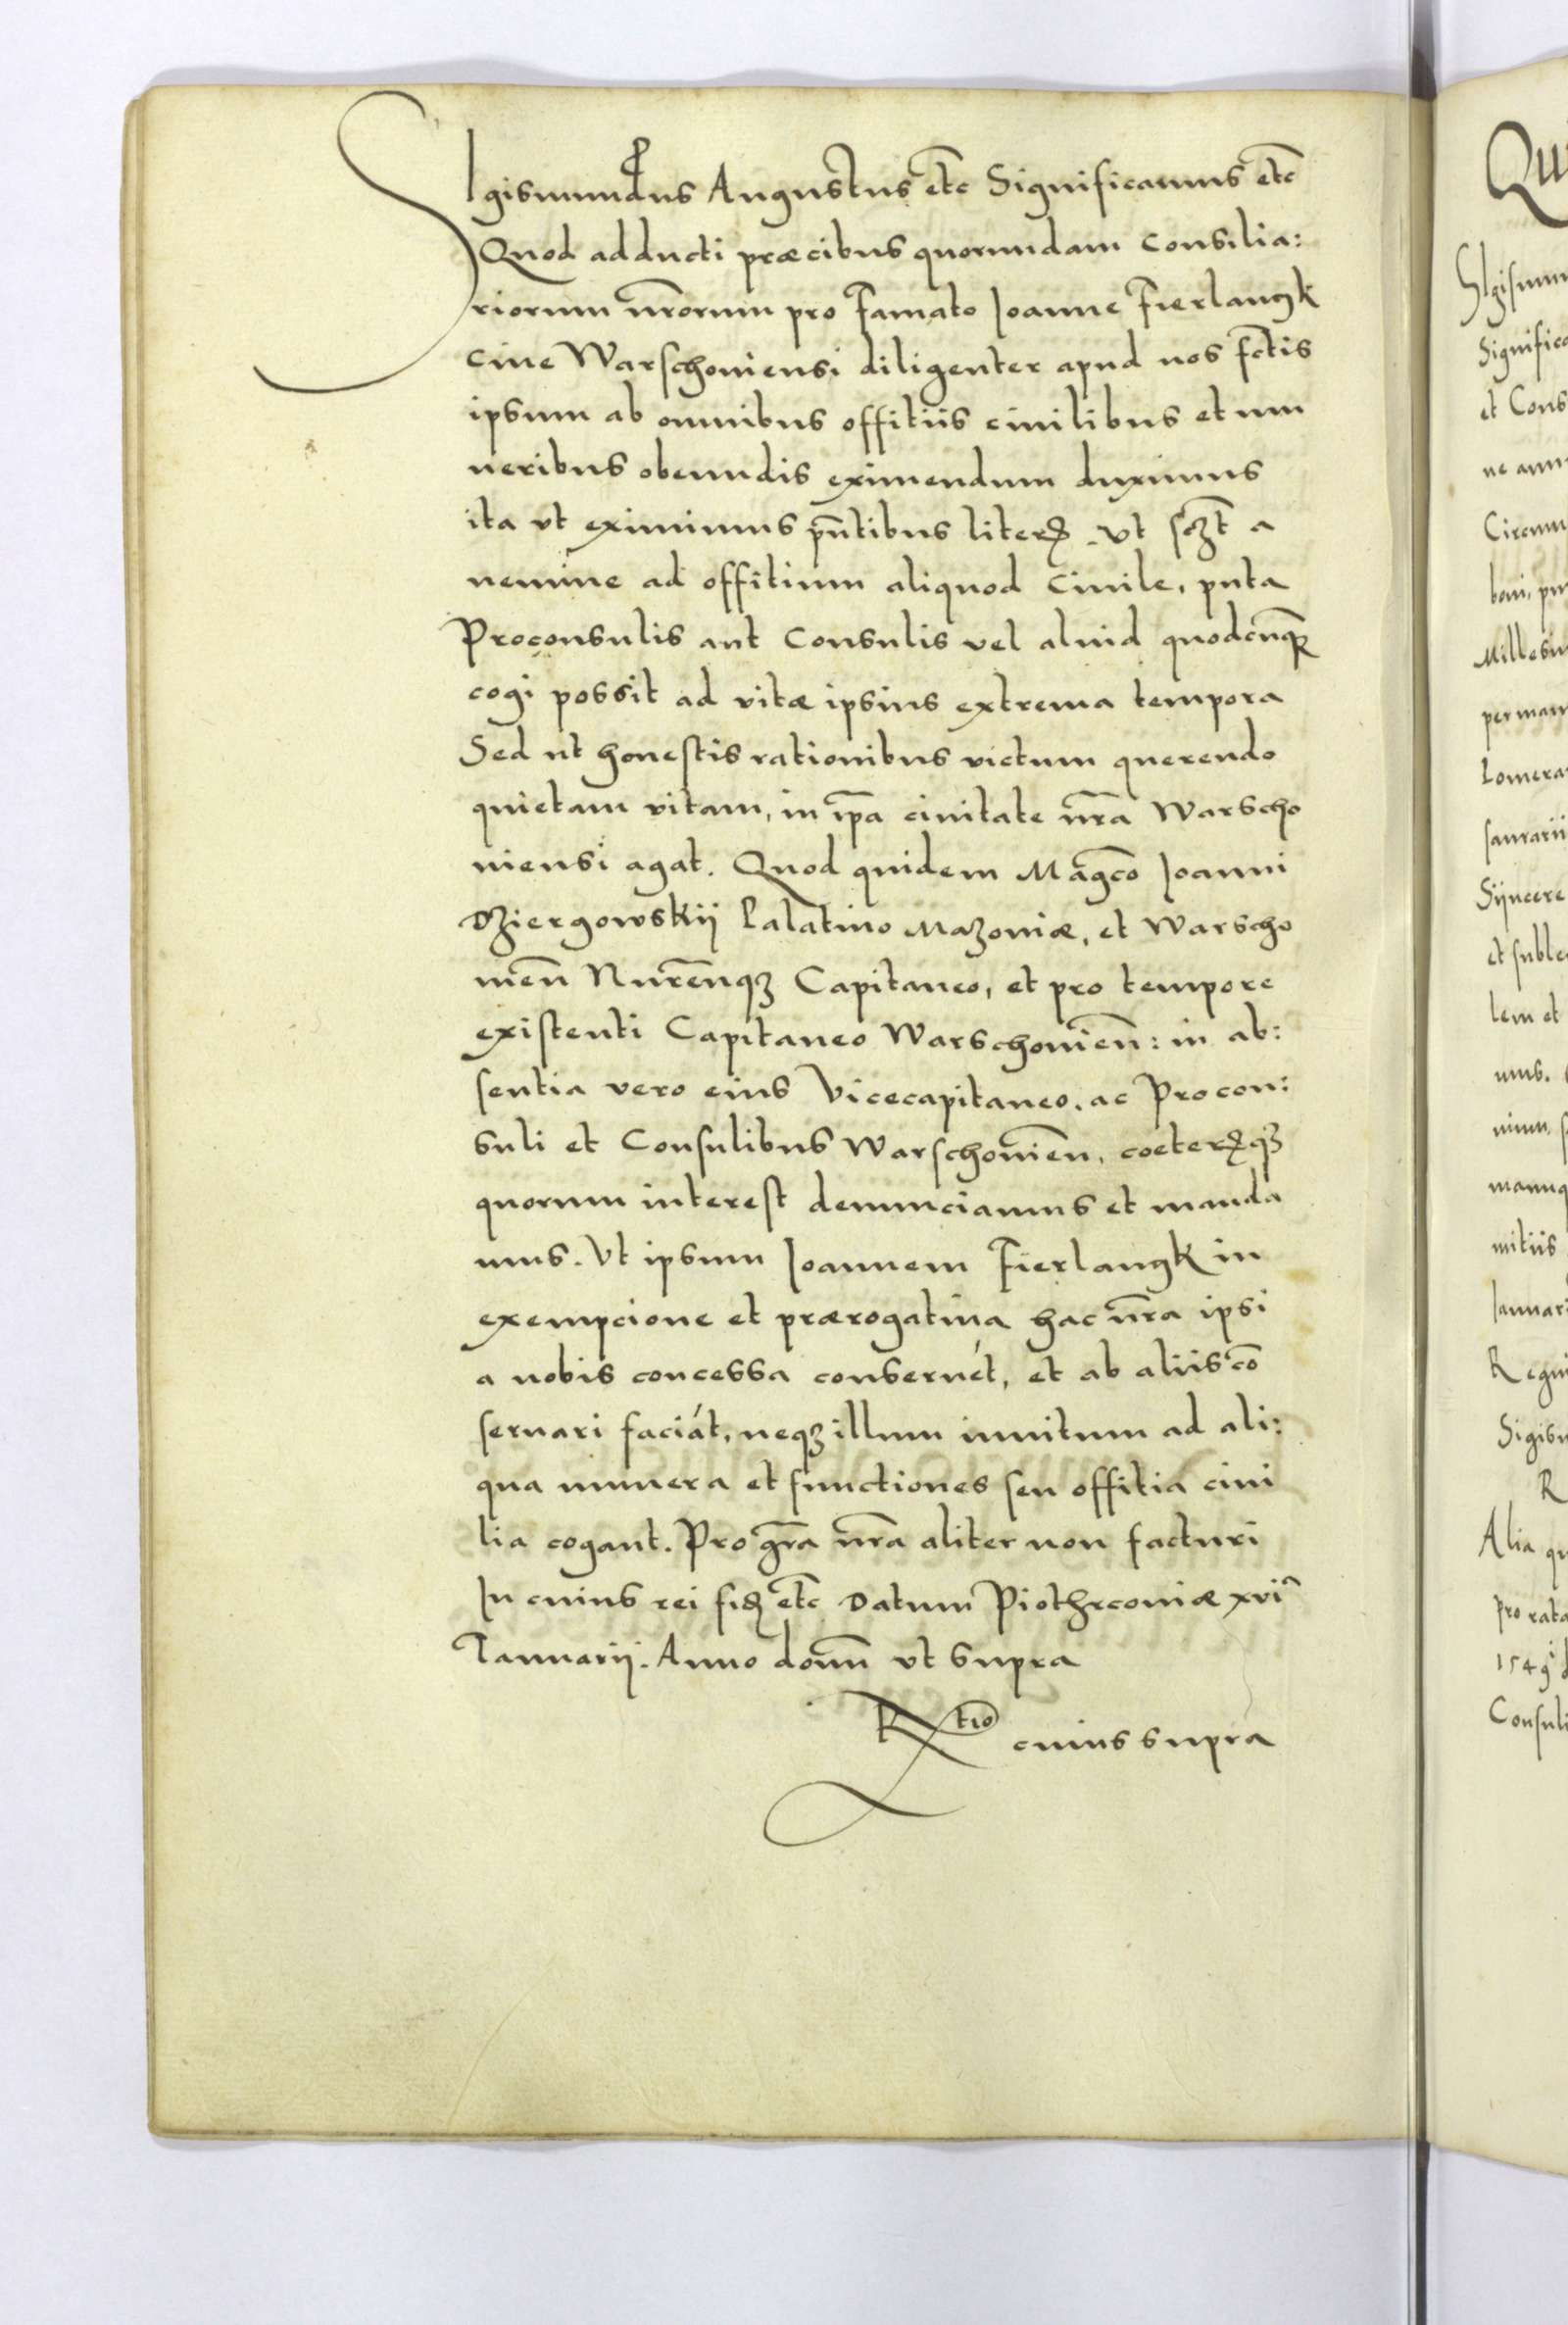 SIgismundus Augustus etc̄ Significamus etc̄
Quod adducti præcibus quorundam Consilia:
riorum nr̄orum pro Famato Ioanne Fierlangk
Ciue Warschouiensi diligenter apud nos fc̄tis
ipsum ab omnibus offitiis ciuilibus et mu
neribus obeundis eximendum duximus
ita vt eximimus pn̄tibus literꝭ. Vt scꝫt a
nemine ad offitium aliquod Ciuile, puta
Proconsulis aut Consulis vel aliud quodcunqꝫ
cogi possit ad vitæ ipsius extrema tempora
Sed ut honestis rationibus victum querendo
quietam vitam, in ip̄a ciuitate nr̄a Warscho
uiensi agat. Quod quidem Maḡco Ioanni
Dziergowskij Palatino Mazouiæ, et Warscho
uien̄ Nuren̄qꝫ Capitaneo, et pro tempore
existenti Capitaneo Warschouien̄: in ab:
sentia vero eius Vicecapitaneo. ac Procon:
suli et Consulibus Warschouien̄, coeterꝭqꝫ
quorum interest denunciamus et manda
mus. Vt ipsum Ioannem Fierlangk in
exempcione et prærogatiua hac nr̄a ipsi
a nobis concessa conseruēt, et ab aliis cō
seruari faciāt, neqꝫ illum inuitum ad ali:
qua munera et functiones seu offitia ciui
lia cogant. Pro gr̄a nr̄a aliter non facturi
In cuius rei fidꝫ etc̄ Datum Piothrcouiæ xvi
Ianuarij. Anno domn̄ vt supra
Rtio cuius supra
QUI
SIgismun
Significa
et Cons
ne ann
Circum
boni, pu
Millesi
per man
Lomera
saurarii
Sijncere
et suble
lem et
mus.
nium, s
manuq
nitiis
Ianuari
Regni
Sigism
R
Alia qu
pro rata
1549
Consuli